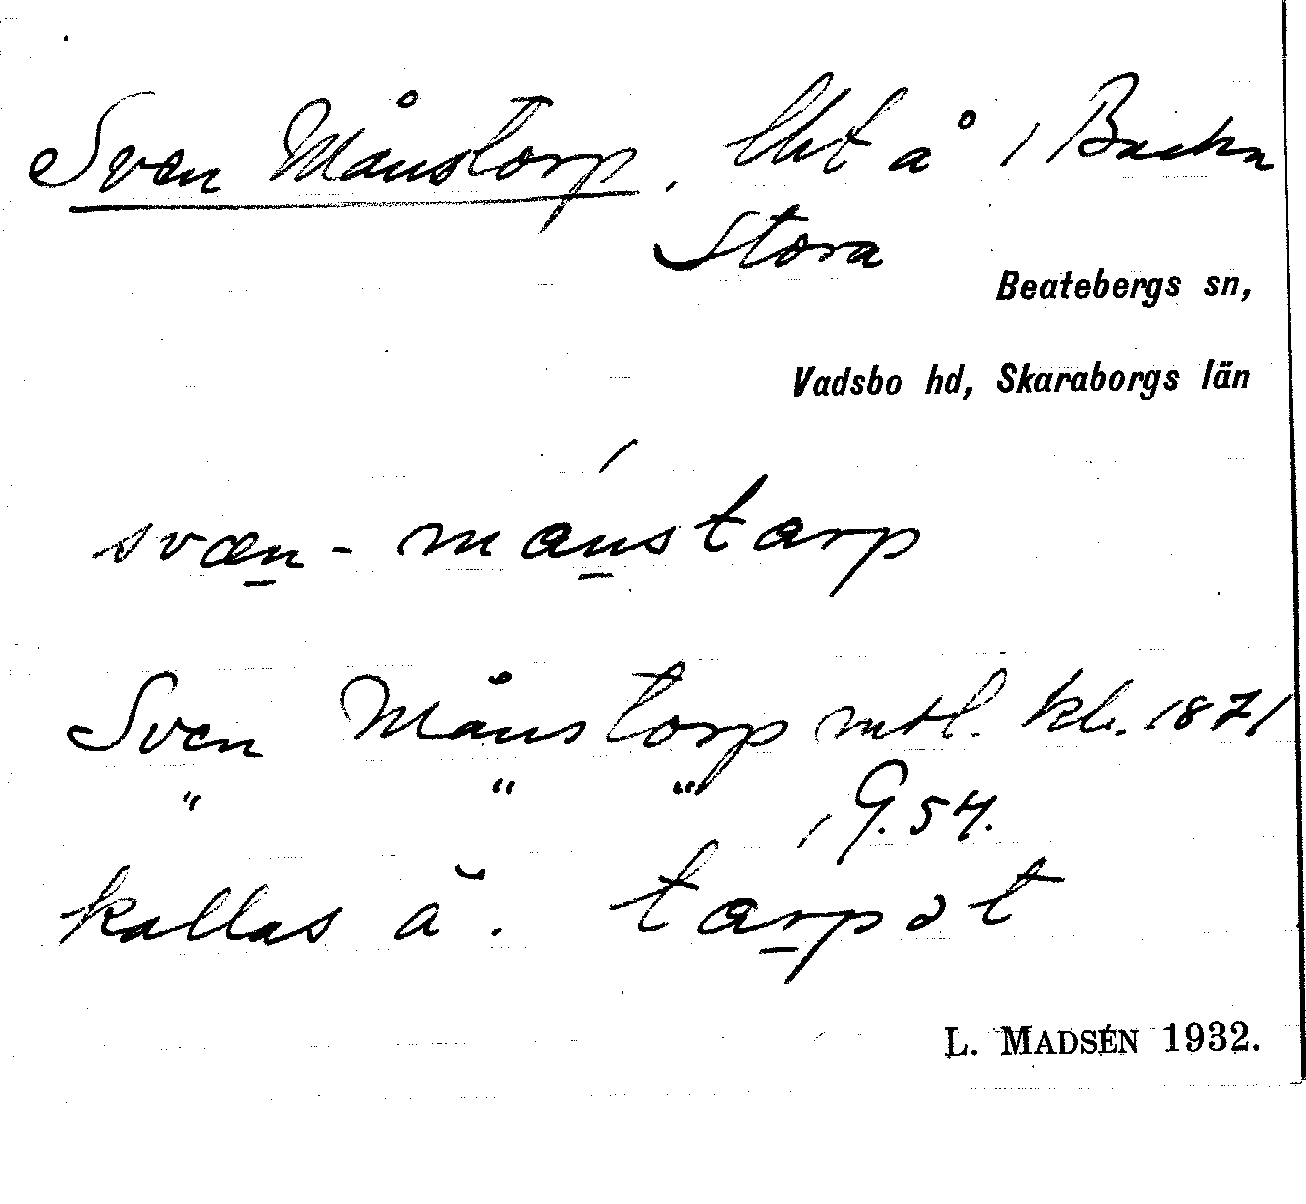 Sven Månstorp, lht å 1/1 Backa
Stora
Beatebergs sn,
Vadsbo hd, Skaraborgs län
svæn - månstarp
Sven Månstorp mtl. kb. 1871
" " " G. 54.
kallas ä. tarpət
L. MADSÉN 1932.